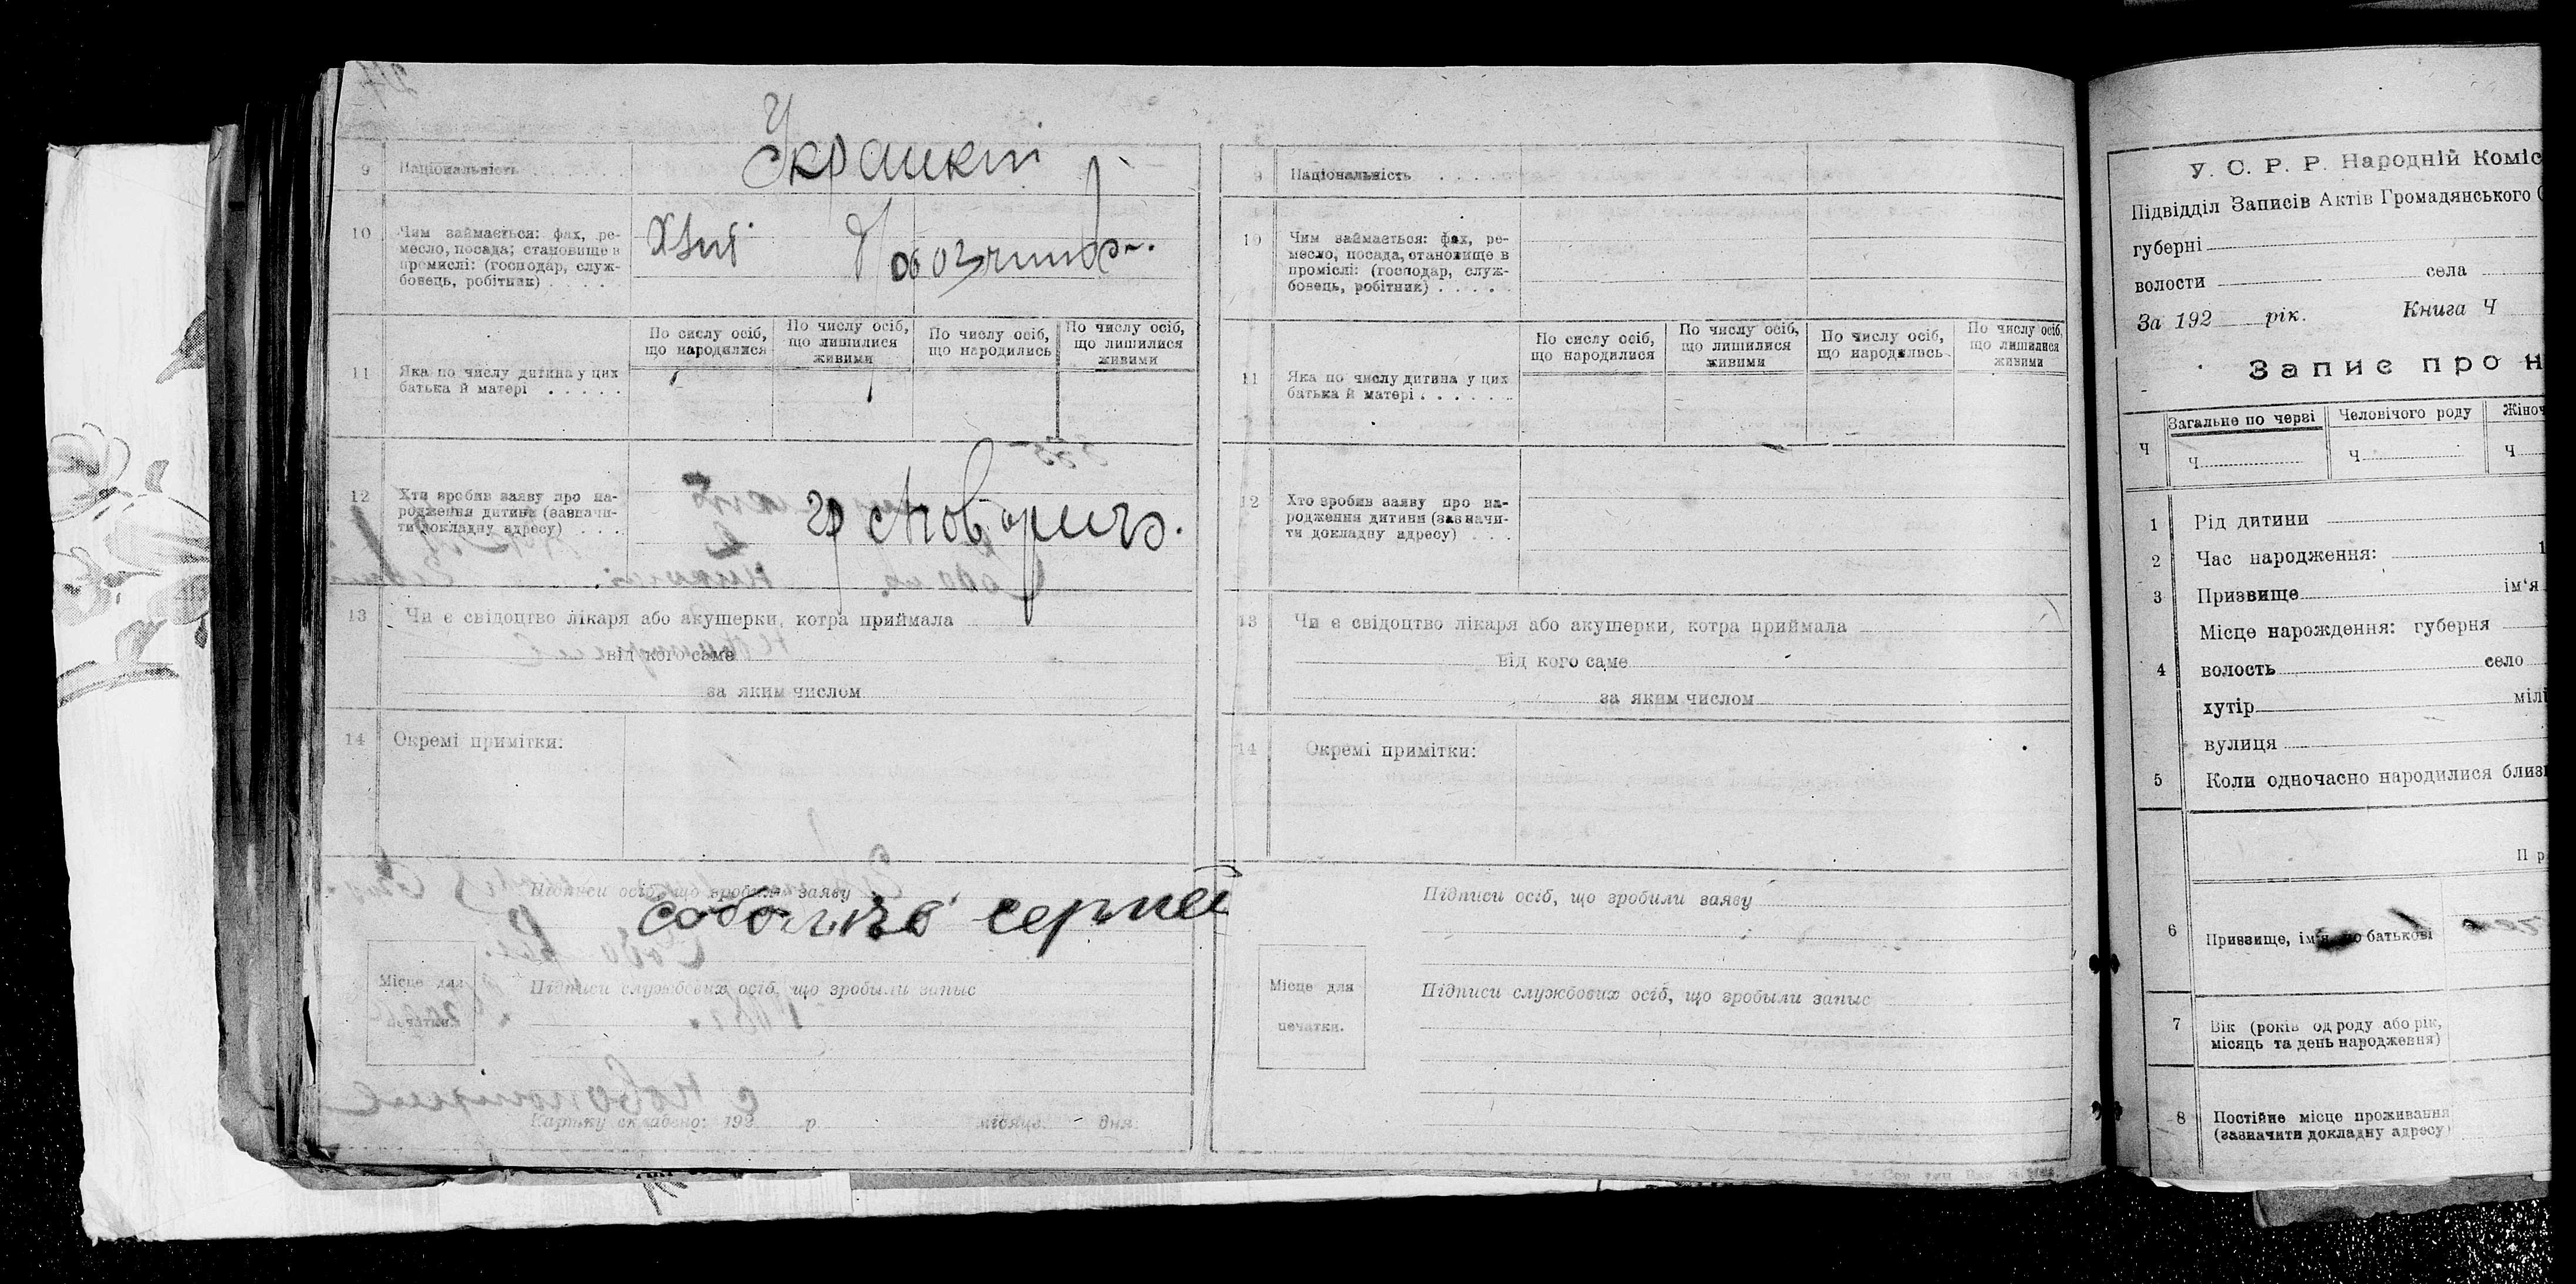 9 Національність
Украинкт
10 Чим займається: фах, ре-
месло, посада; становище в
промислі: (господар, служ-
бовець, робітник)
По числу осіб,
що народилися
По числу осіб,
що лишилися
живими
По числу осіб,
що народились
По числу осіб,
що лишилися
живими
11 Яка по числу дитина у цих
батька й матері
12 Хто зробив заяву про на-
родження дитини (зазначи-
ти докладну адресу)
13 Чи є свідоцтво лікаря або акушерки, котра приймала
від кого саме
за яким числом
14 Окремі примітки:
Підписи осіб, що зробили заяву
соболивь сергией
Місце для
печатки.
Підписи службових осіб, що зробыли запыс
Картку складено: 192 р. місяця дня
9 Національність
10 Чим займається: фах, ре-
месло, посада, становище в
промислі: (господар, служ-
бовець, робітник)
По числу осіб,
що народилися
По числу осіб,
що лишилися
живими
По числу осіб,
що народились
По числу осіб,
що лишилися
живими
11 Яка по числу дитина у цих
батька й матері
12 Хто зробив заяву про на-
родження дитини (зазначи-
ти докладну адресу)
13 Чи є свідоцтво лікаря або акушерки, котра приймала
від кого саме
за яким числом
14 Окремі примітки:
Підписи осіб, що зробили заяву
Місце для
печатки.
Підписи службових осіб, що зробыли запыс
У. С. Р. Р. Народній Коміс
Підвідділ Записів Актів Громадянського
губерні
волости села
За 192 рік. Книга Ч
Запис про н
Ч Загальне по черзі Человічого роду Жіноч
Ч Ч Ч
1 Рід дитини
2 Час народження: 1
3 Призвище ім'я
Місце нарождення: губерня
4 волость село
хутір мілі
вулиця
5 Коли одночасно народилися близ
П р
6 Призвище, ім'я по батькові
7 Вік (років од роду або рік,
місяць та день народження)
8 Постійне місце проживання
(зазначити докладну адресу)